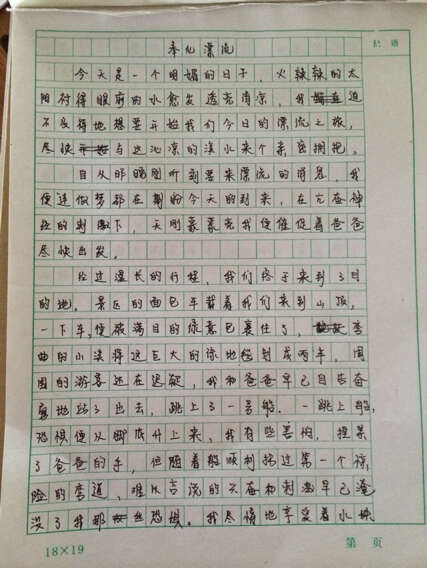 奉化漂流
评语
今天是一个明媚的日子，火辣辣的太
阳衬得眼前的水愈发透亮清凉，我迫
不及待地想要开始我们今日的漂流之旅，
尽快与这沁凉的溪水来个亲密拥抱。
自从那晚刚听到要来漂流的消息，我
便连做梦都在期盼今天的到来，在它奋神
经的刺激下，天刚蒙蒙亮我便催促着爸爸
尽快出发。
经过漫长的行程，我们终于来到了目
的地。景区的面包车载着我们来到山顶，
一下车，便被满目的绿意包裹住了，弯
曲的小溪将这巨大的绿地毯割成两半，周
围的游客还在迟疑，我和爸爸早已自告奋
勇地踏了出去，跳上了一号船。一跳上船，
恐惧便从脚底升上来，我有些害怕，捏紧
了爸爸的手，但随着船顺利拐过第一个惊
险的弯道，难以言说的兴奋和刺激早已淹
没了我那丝恐惧。我尽情地享受着水
18×19
第 页